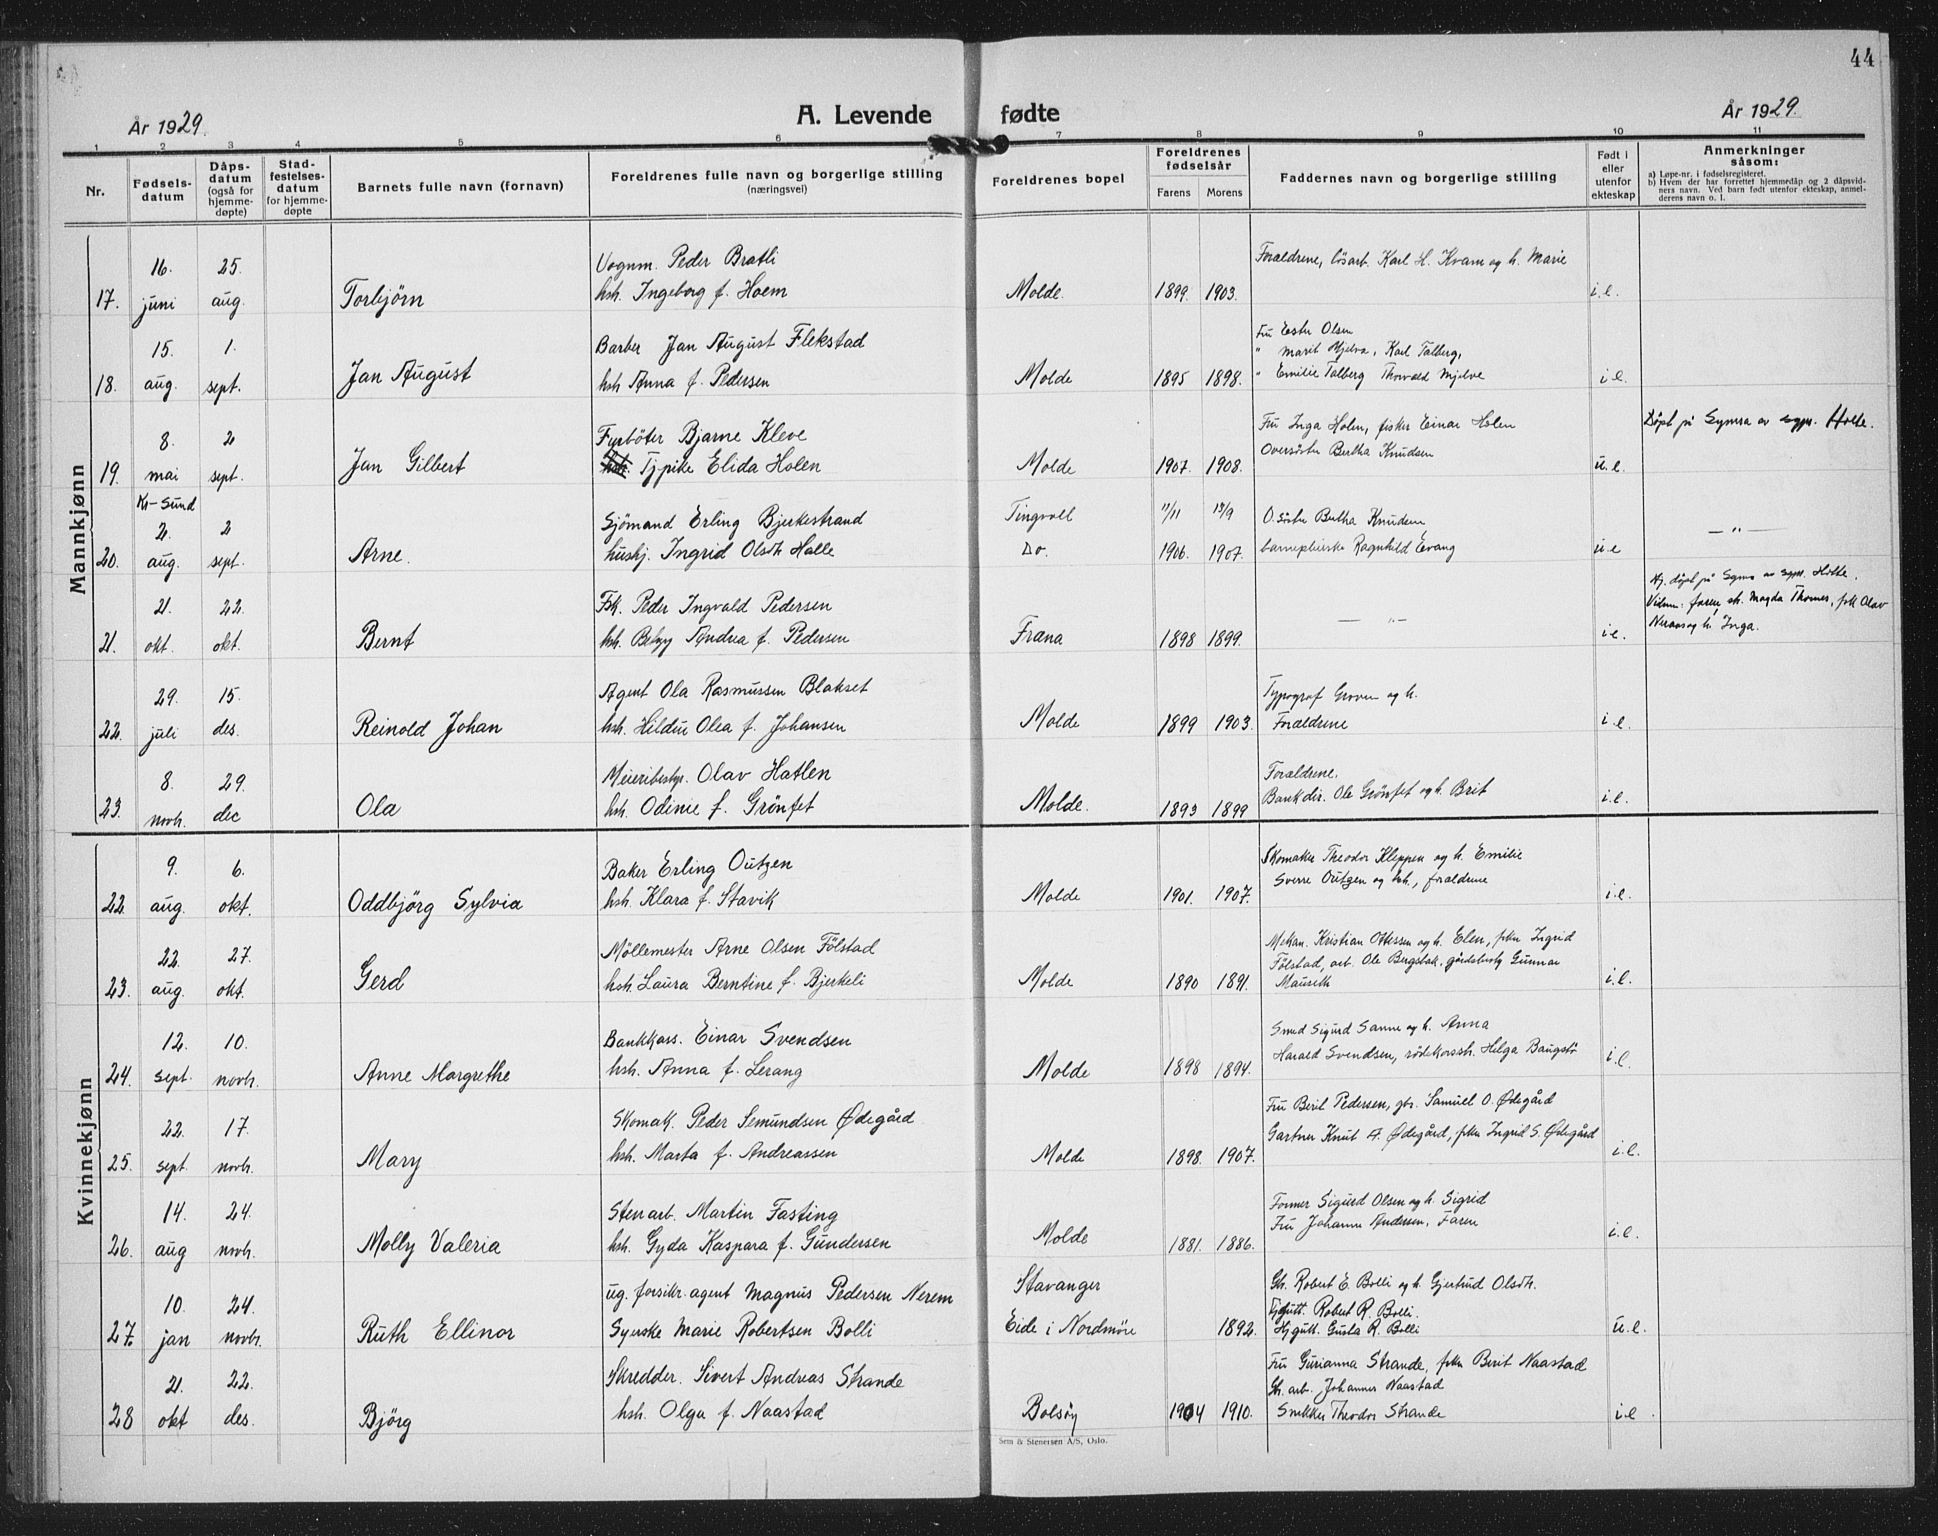 44
År 1929.
A. Levende fødte
År 1929.
1 2 3 4 5 6 7 8 9 10 11
Nr.
Fødsels-
datum
Dåps-
datum
(også for
hjemme-
døpte)
Stad-
festelses-
datum
for hjemme-
døpte
Barnets fulle navn (fornavn)
Foreldrenes fulle navn og borgerlige stilling
(næringsvei)
Foreldrenes bopel
Foreldrenes
fødselsår
Farens Morens
Faddernes navn og borgerlige stilling
Født i
eller
utenfor
ekteskap
Anmerkninger
såsom:
a) Løpe-nr. i fødselsregisteret.
b) Hvem der har forrettet hjemmedåp og 2 dåpsvid-
ners navn. Ved barn født utenfor ekteskap, anmel-
derens navn o. l.
Mannkjønn
16. 25. Vognm. Peder Bratli Foreldrene, løsarb. Karl H. Kvam og h. Marie
17. juni aug. Torbjörn hsh. Ingeborg f. Hoem Molde. 1899. 1903. i.e.
15. 1. Barber Jan August Flekstad Fru Ester Olsen
" Marit Hjelva, Karl Talberg,
18. aug. sept. Jan August hsh. Anna f. Pedersen Molde 1895 1898. " Emilie Talberg Thorvald Mjelve i.e.
8. 2 Fyrböter Bjarne Kleve Fru Inga Holen, fisker Einar Holen Döpt på Gymsa av sgpr. Holte.
19. mai sept. Jan Gilbert Tjpike Elida Holen Molde 1907. 1908. Oversöster Bertha Knudsen u.e.
Kr-Sund
2. 2 Sjömand Erling Bjerkestrand Tingvoll 11/11 19/9 O.söster Bertha Knudsen — " —
20. aug. sept. Arne. hushj. Ingrid Olsdtr Halle Do. 1906. 1907. barnepleierske Ragnhild Evang u.e
21. 22. Fsk. Peder Ingvald Pedersen Hj. döpt på Gyms av sgpr. Holte.
Vidner: faren, sk. Magda Thomes, fsk Olav
21. okt. okt. Bernt hsh. Betzy Andrea f. Pedersen Fræna 1898 1899. — " — i.e. Neraas og h. Inga.
29. 15. Agent Ola Rasmussen Blakset Typograf Groven og h.
22. juli des. Reinold Johan hsh. Hildur Olea f. Johansen Molde 1899 1903. Foreldrene i.e.
8. 29. Meieribestyr. Olav Hatlen Foreldrene.
23. novb. dec Ola hsh. Odinie f. Grönfet Molde. 1893 1899 Bankdir. Ole Grönfet og h. Brit i.e.
Kvinnekjønn
9. 6. Baker Erling Outzen Skomaker Theodor Kleppen og h. Emilie
Sverre Outzen og hsh., foreldrene
22 aug. okt. Oddbjörg Sylvia hsh. Klara f. Stavik Molde 1901. 1907. i.e.
22. 27. Möllemester Arne Olsen Fölstad Mekan. Kristian Ottesen og h. Elen, pkn Ingrid
Fölstad, arb. Ole Bergstak, gårdsbestyr Gunnar
23. aug. okt. Gerd hsh. Laura Berntine f. Bjerkeli Molde 1890 1891. Mauseth i.e.
12. 10. Bankkass. Einar Svendsen Smed Sigurd Sanne og h. Anna
Harald Svendsen, rödekorssh. Helga Baugstö
24. sept. novb. Anne Margrethe hsh. Anna f. Lerang Molde 1898 1894. i.e.
22. 17. Skomak. Peder Semundsen Ødegård Fru Beril Pedersen, gbr. Samuel O. Ødegård
Gartner Knut A. Ødegård, pkn Ingrid S. Ødegård
25. sept. novb. Mary hsh. Marta f. Andreassen Molde 1898. 1907. i.e.
14. 24. Stenarb. Martin Fasting Former Sigurd Olsen og h. Sigrid
Fru Johanne Andersen, Faren
26. aug novb. Molly Valeria hsh. Gyda Kaspara f. Gundersen Molde 1881. 1886. i.e.
10. 24. ug. forsikr. agent Magnus Pedersen Nerem Stavanger Gb. Robert E. Bolli og h. Gjertrud Olsdtr.
Tjgutt. Robert R. Bolli.
27. jan novb. Ruth Ellinor Syerske Marie Robertsen Bolli Eide i Nordmöre 1892. Hjgutt. Gusta R. Bolli u.e.
21. 22. Skredder. Sivert Andreas Strande Fru Gurianna Strande, pkn Berit Naastad
Gb. arb. Johannes Naastad
28 okt des. Björg hsh. Olga f. Naastad Bolsöy 1904 1910. Snekker Theodor Strande i.e.
Sem & Stenersen A/S, Oslo.